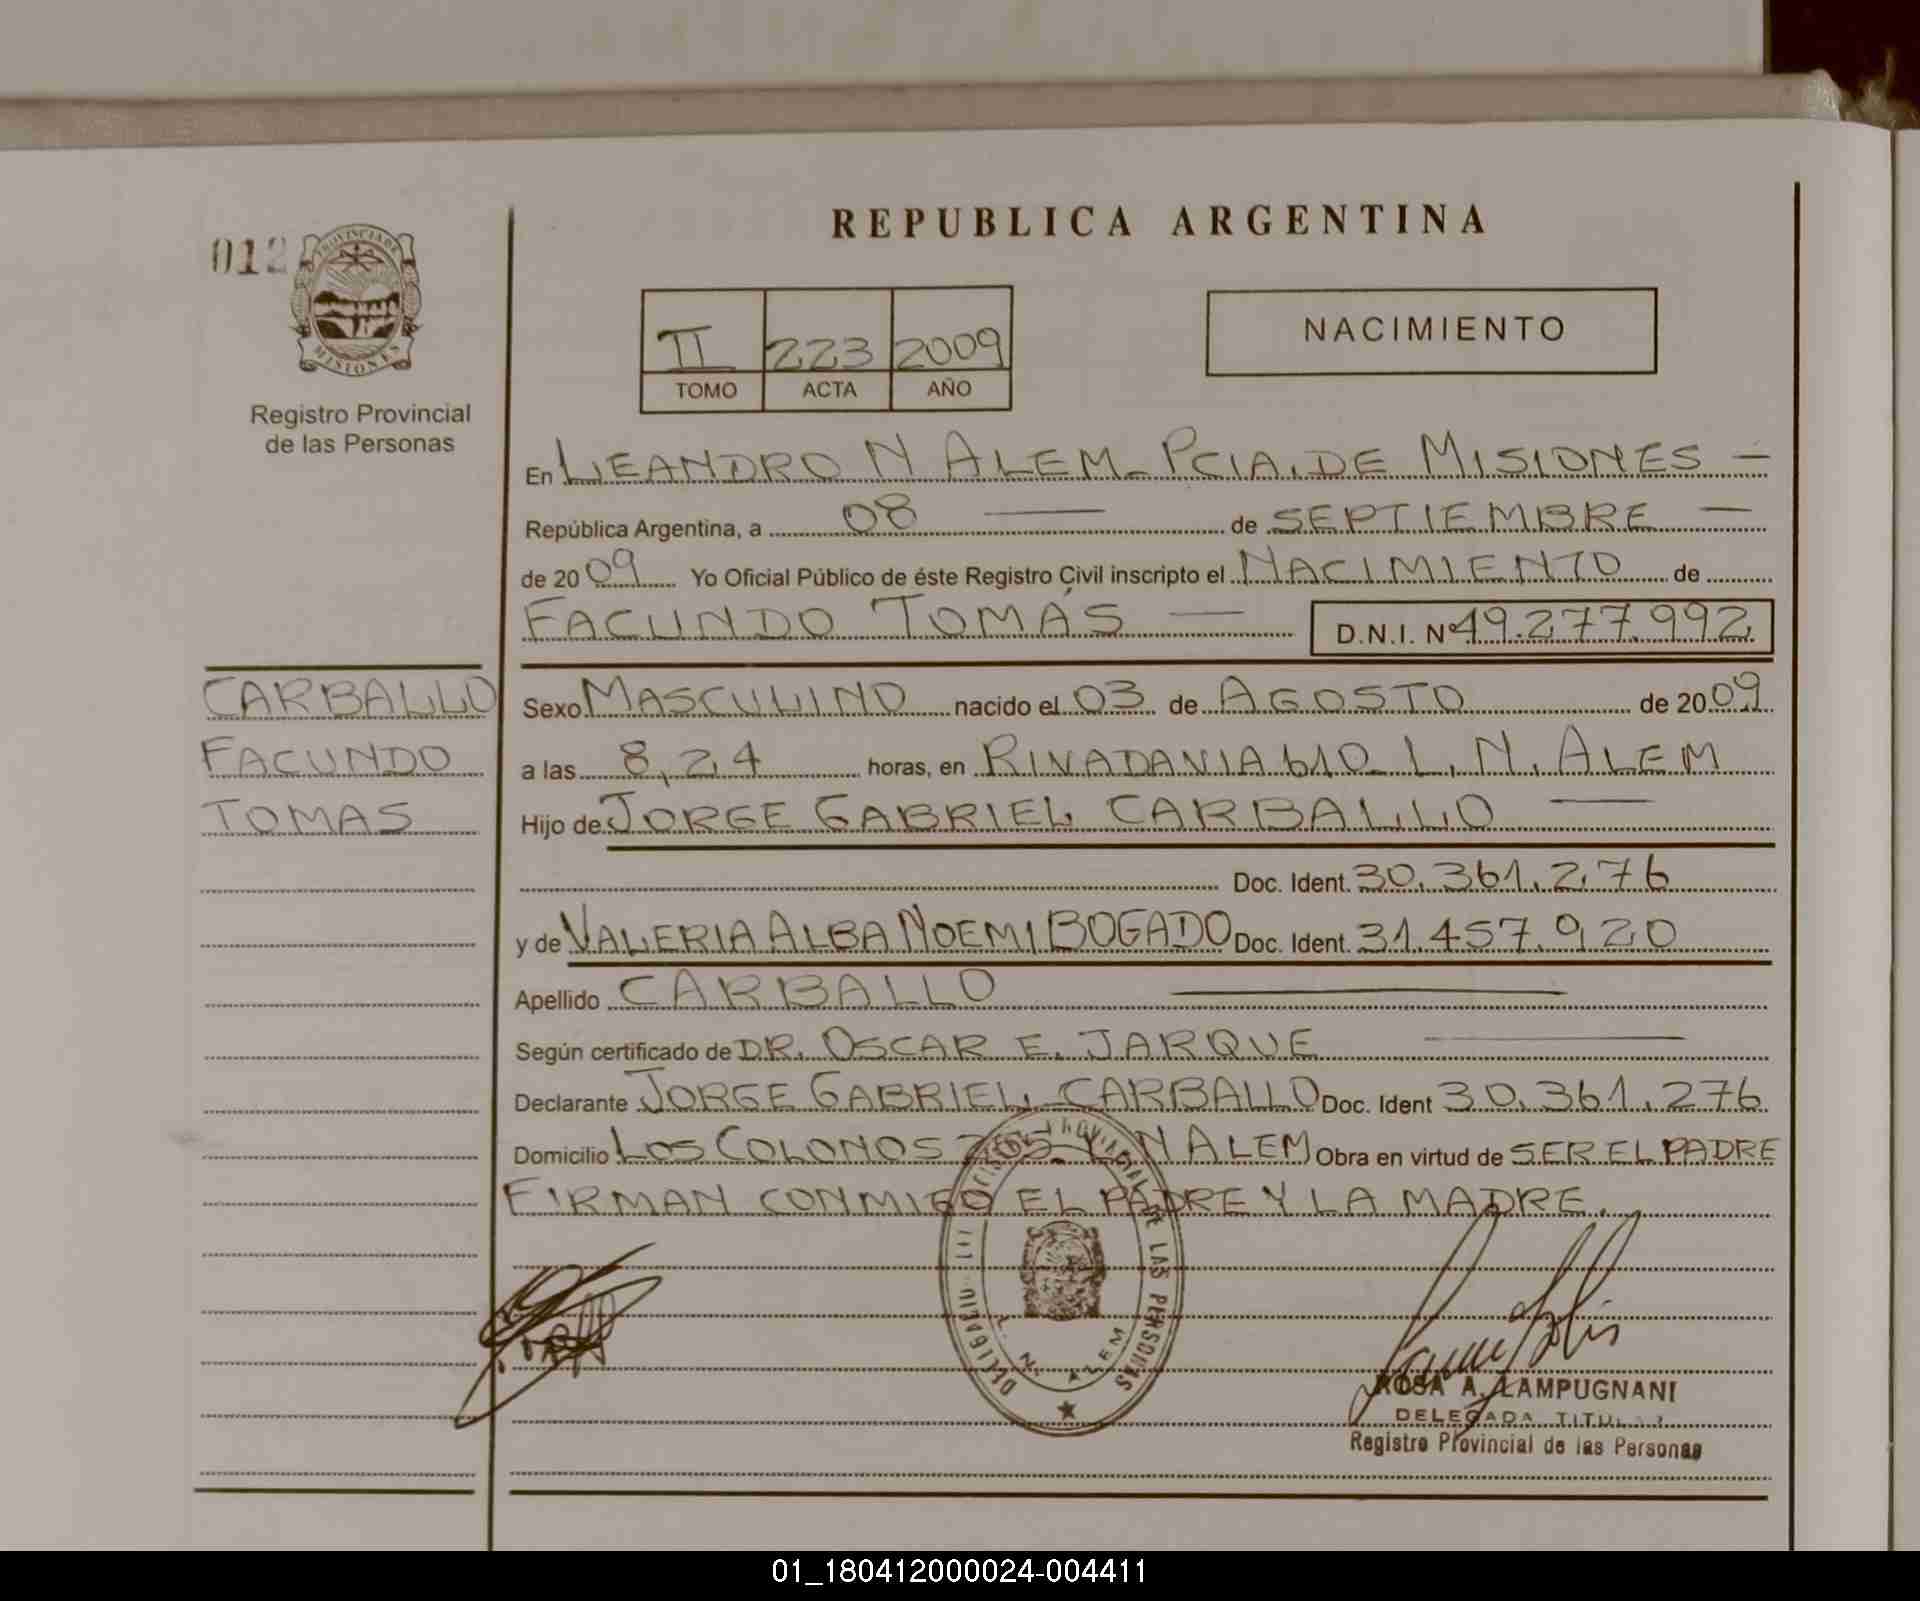 REPUBLICA ARGENTINA
012
PROVINCIA DE
MISIONES
Registro Provincial
de las Personas
II 223 2009
TOMO ACTA AÑO
NACIMIENTO
En LEANDRO N ALEM - PCIA. DE MISIONES —
República Argentina, a 08 — de SEPTIEMBRE —
de 2009 Yo Oficial Público de éste Registro Civil inscripto el NACIMIENTO de
FACUNDO TOMÁS — D.N.I. Nº 49.277.992
CARBALLO
FACUNDO
TOMAS
Sexo MASCULINO nacido el 03 de AGOSTO de 2009
a las 8,24 horas, en RIVADAVIA 610 - L. N. ALEM
Hijo de JORGE GABRIEL CARBALLO —
Doc. Ident. 30.361.276
y de VALERIA ALBA NOEMI BOGADO Doc. Ident. 31.457.920
Apellido CARBALLO —
Según certificado de DR. OSCAR E. JARQUE —
Declarante JORGE GABRIEL CARBALLO Doc. Ident 30.361.276
Domicilio LOS COLONOS L. N ALEM Obra en virtud de SER EL PADRE
FIRMAN CONMIGO EL PADRE Y LA MADRE.
PROVINCIAL DE LAS PERSONAS
L. N. ALEM
ROSA A. LAMPUGNANI
DELEGADA TITULAR
Registro Provincial de las Personas
01_180412000024-004411